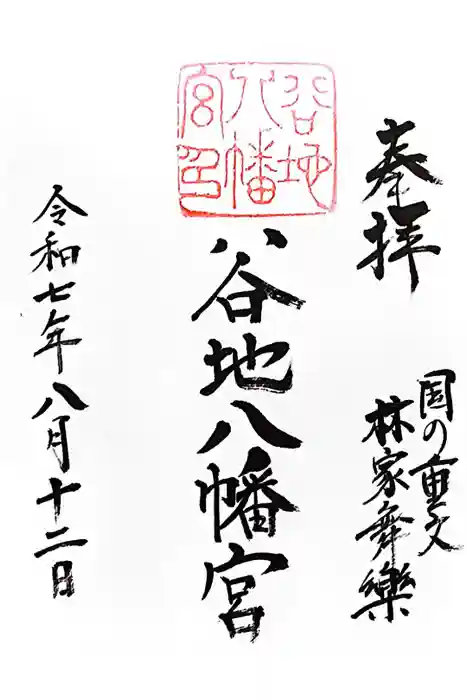 奉拝
国の重文
林家舞樂
谷地八幡宮
谷地八幡宮印
令和七年八月十二日